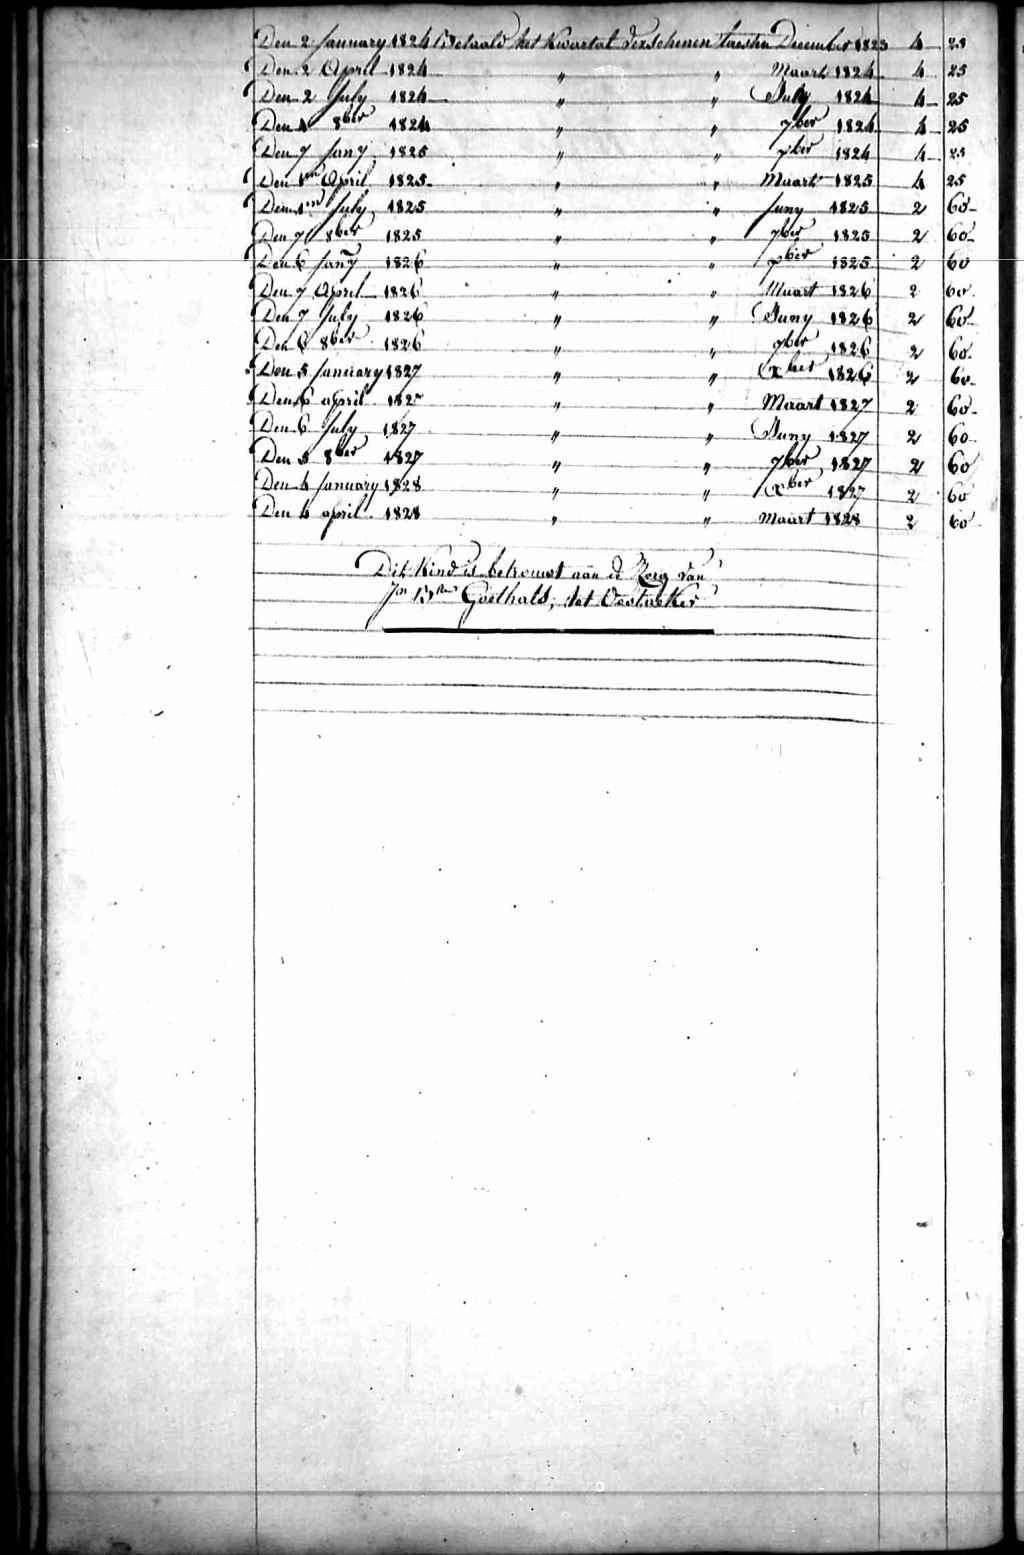 Den 2 January 1824 Betaald het Kwartal verschenen laesten December 1823 4 25
Den 2 April 1824 " " Maart 1824 4 25
Den 2 July 1824 " " July 1824 4 25
Den 1 8ber 1824 " " 7ber 1824 4 25
Den 7 Jany 1825 " " xber 1824 4 25
Den 1en April 1825 " " Maart 1825 4 25
Den 1en July 1825 " " Juny 1825 2 60
Den 7 8ber 1825 " " 7ber 1825 2 60
Den 6 Jany 1826 " " xber 1825 2 60
Den 7 April 1826 " " Maart 1826 2 60
Den 7 July 1826 " " Juny 1826 2 60
Den 6 8ber 1826 " " 7ber 1826 2 60
Den 5 January 1827 " " xber 1826 2 60
Den 6 april 1827 " " Maart 1827 2 60
Den 6 July 1827 " " Juny 1827 2 60
Den 5 8ber 1827 " " 7ber 1827 2 60
Den 4 January 1828 " " xber 1827 2 60
Den 4 april 1828 " " Maart 1828 2 60
Dit Kind is betrouwt aan de Zorg van
Goethals, tot Oostacker